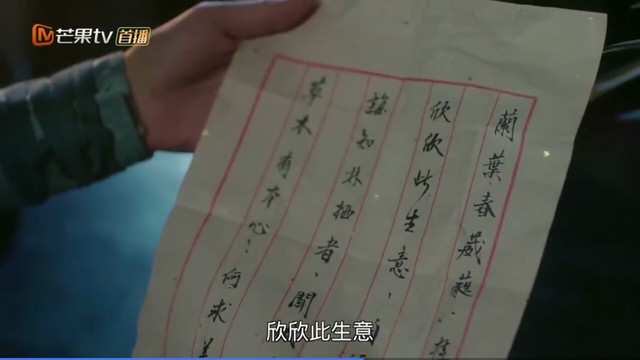 芒果tv 首播
蘭葉春葳蕤、桂
欣欣此生意、自
誰知林栖者、聞
草木有本心、何求美
欣欣此生意